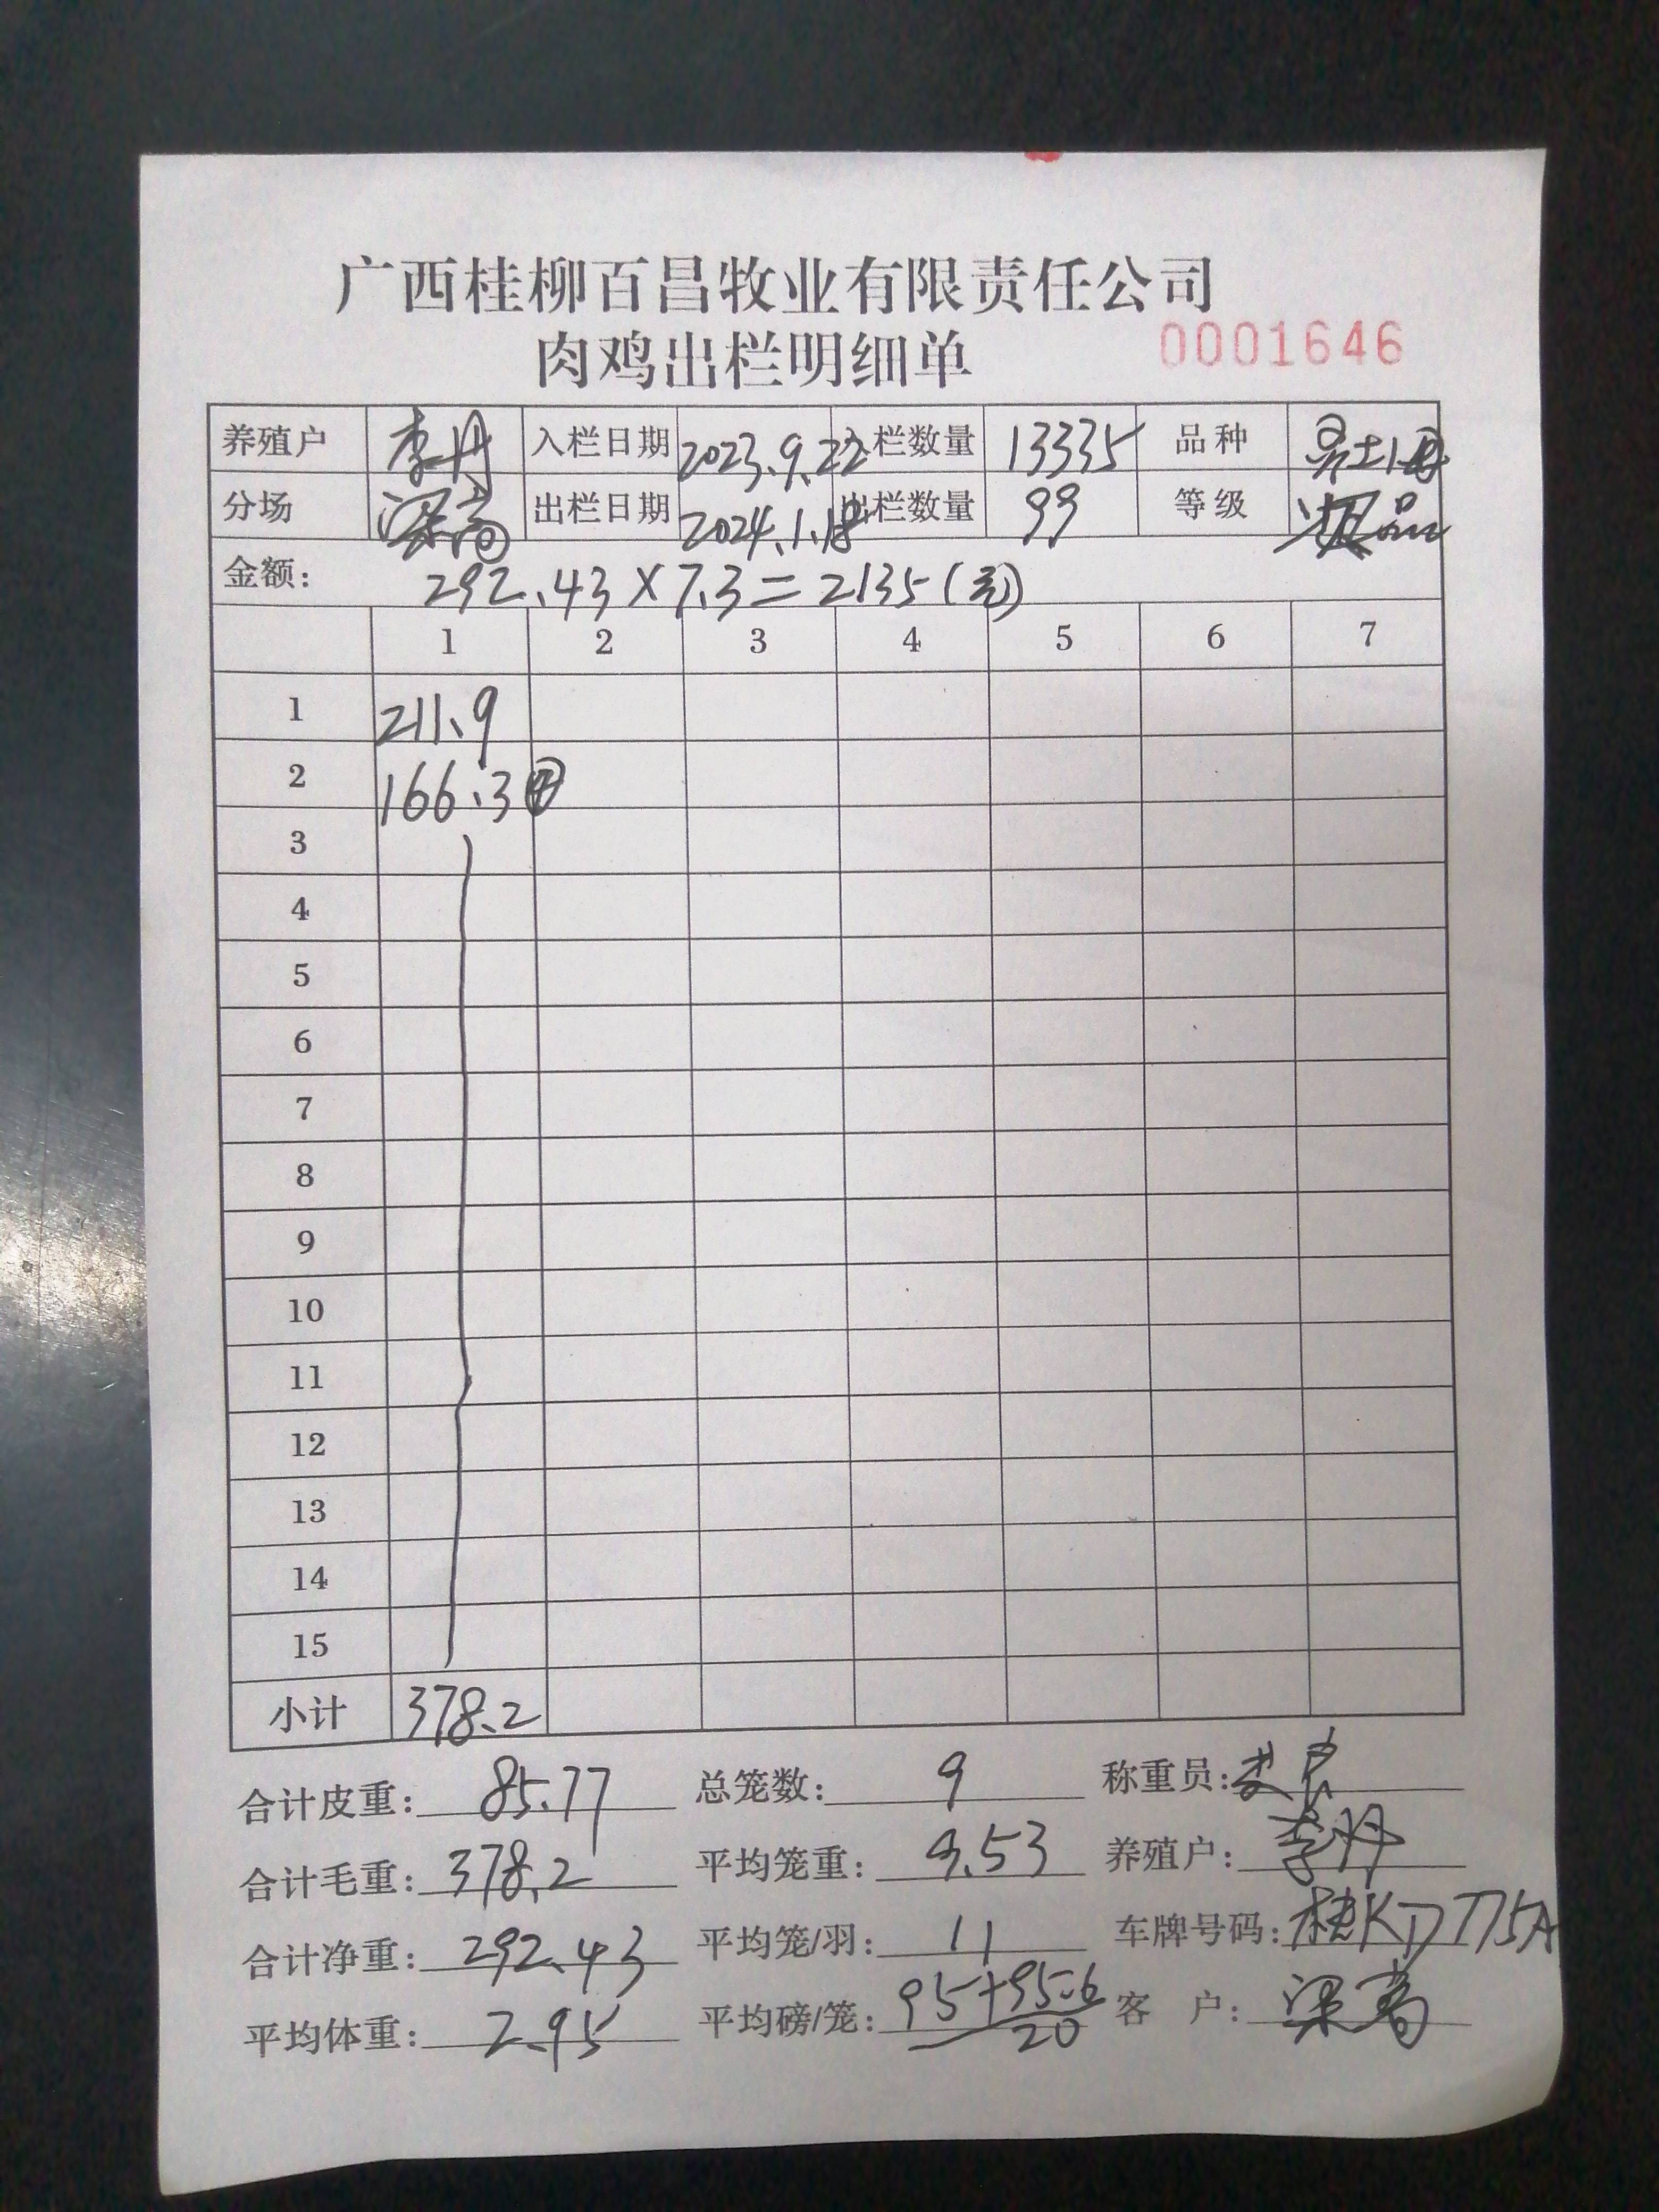 广西桂柳百昌牧业有限责任公司
肉鸡出栏明细单 0001646
养殖户 李丹 入栏日期 2023.9.22 入栏数量 13335 品种
分场 梁高 出栏日期 2024.1.18 出栏数量 99 等级 品
金额: 292.43×7.3=2135(元)
1 2 3 4 5 6 7
1 211.9
2 166.3
3
4
5
6
7
8
9
10
11
12
13
14
15
小计 378.2
合计皮重: 85.77 总笼数: 9 称重员:
合计毛重: 378.2 平均笼重: 9.53 养殖户: 李丹
合计净重: 292.43 平均笼/羽: 11 车牌号码: 桂KD775A
平均体重: 2.95 平均磅/笼: 95+95.6/20 客户: 梁高